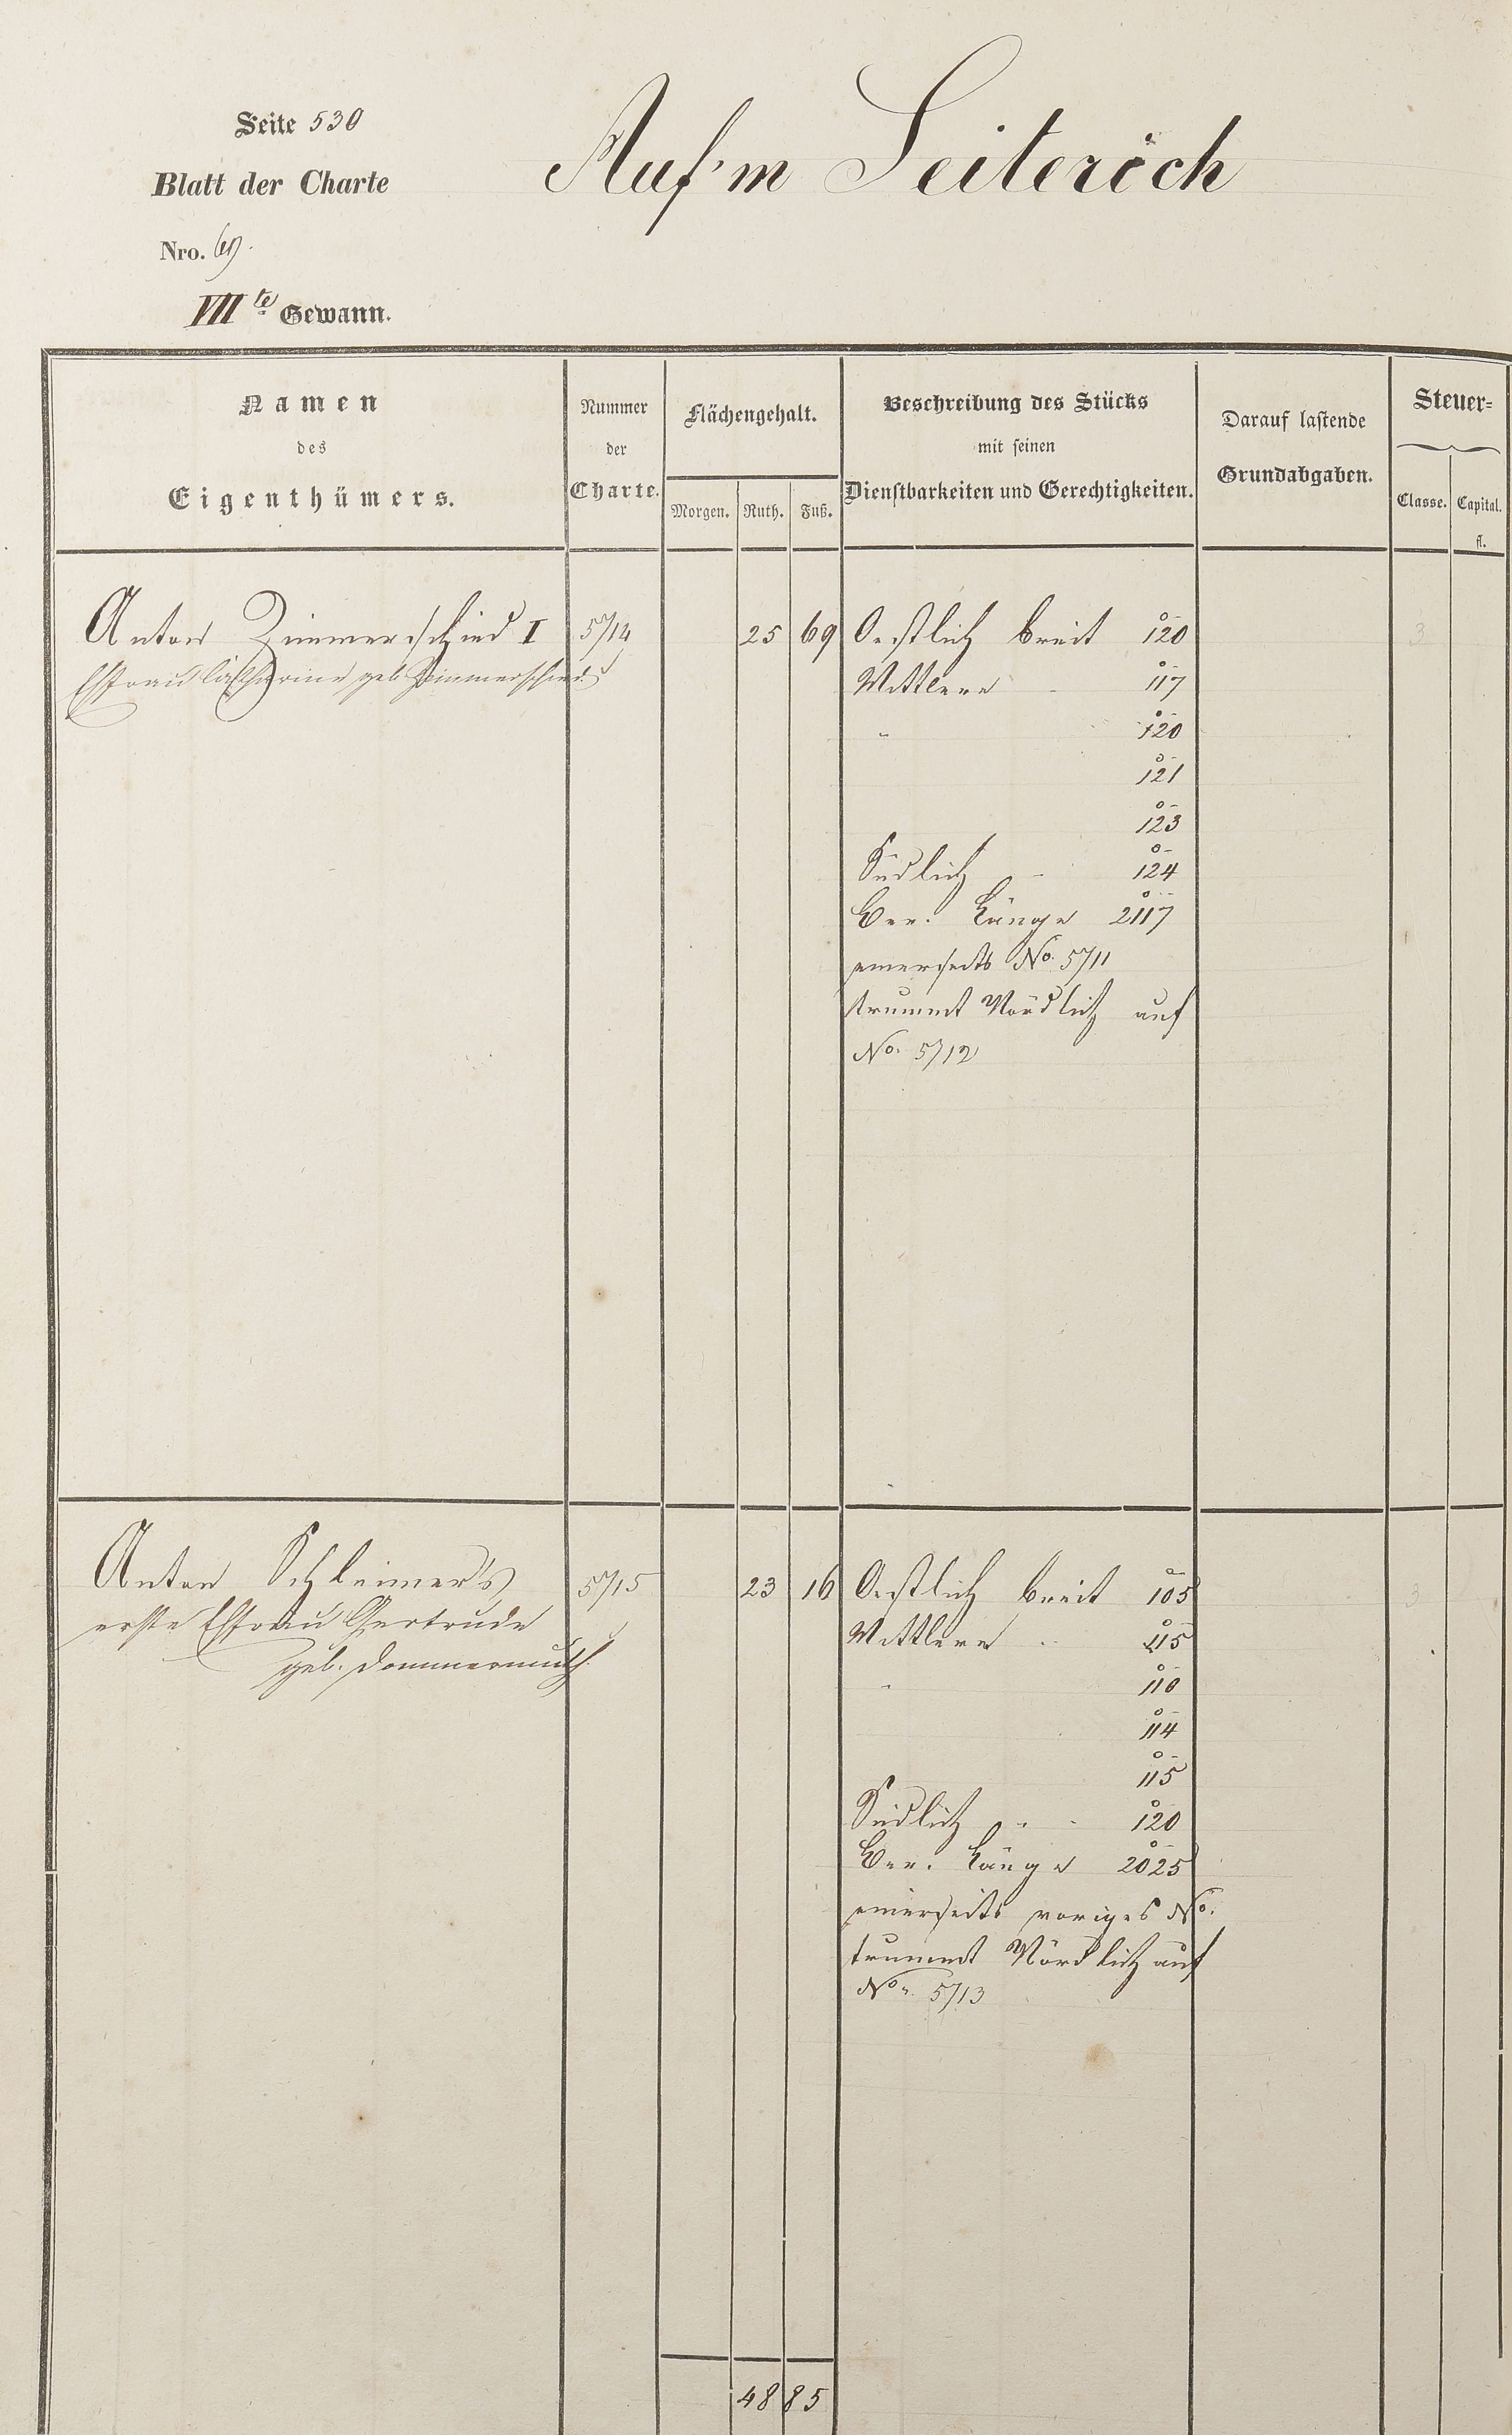 Seite 530
Blatt der Charte
Nro.
VII te Gewann.
Auf'm Seiterich
Namen
des
Eigenthümers.
Nummer
der
Charte.
Flächengehalt.
Morgen. Ruth. Fuß.
Beschreibung des Stücks
mit seinen
Dienstbarkeiten und Gerechtigkeiten.
Darauf lastende
Grundabgaben.
Steuer=
Classe. Capital.
fl.
Anton Zimmerschied I 5714 25 69 Oestlich breit 120 3
Ehfrau Catharine geb Zimmerschied
Mittlere 117
" 120
121
123
Südlich - 124
Ber. Länge 2117
einerseits No. 5711
trummt Nördlich auf
No. 5712
Anton Schleimer's 5715 23 16 Oestlich breit 105 3
erste Ehfrau Gertrude
geb. Dommermuth.
Mittlere 115
" 110
114
115
Südlich 120
Ber. Länge 2025
einerseits voriges No.
trummt Nördlich auf
No. 5713
48 85